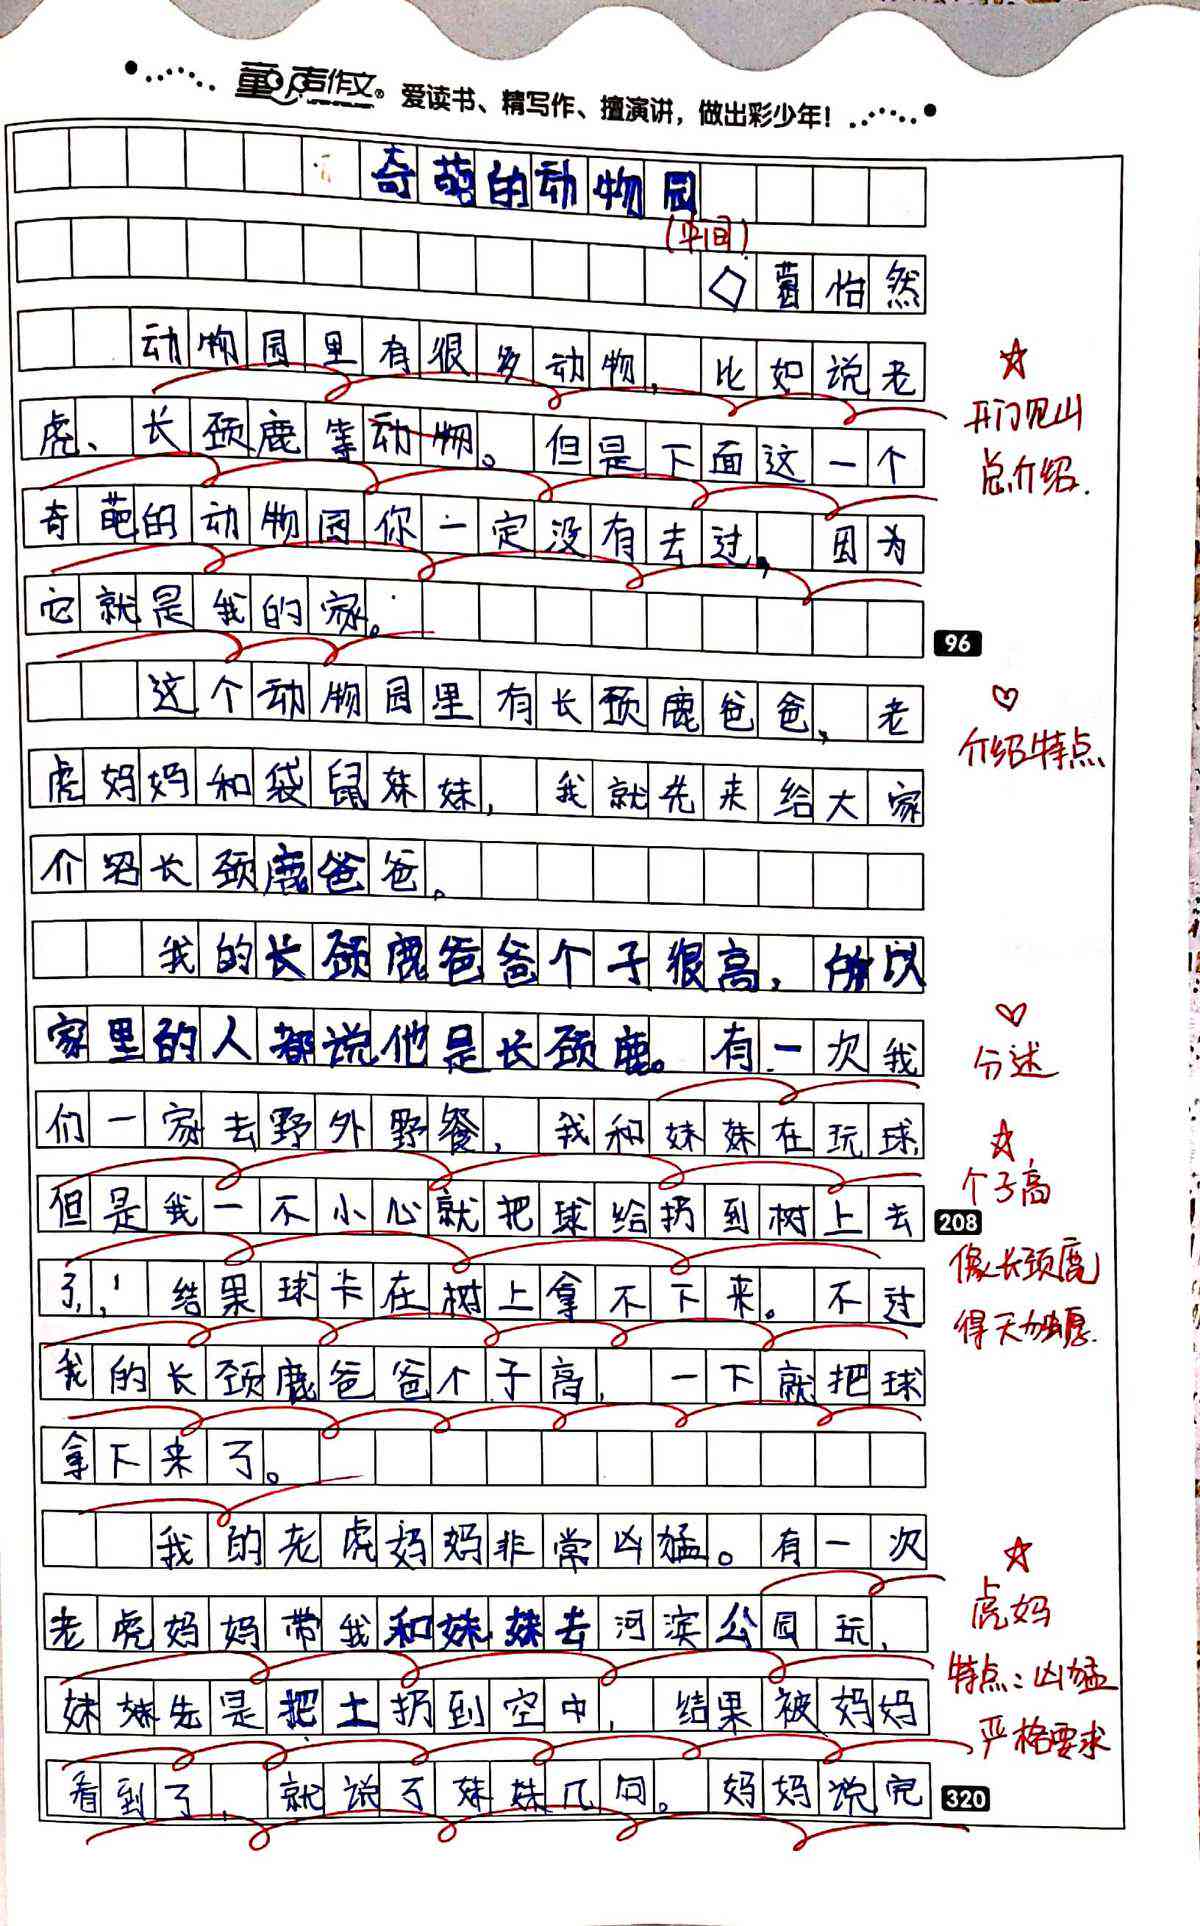 童声作文® 爱读书、精写作、擅演讲，做出彩少年！
奇葩的动物园
(平间)
◇ 怡然
动物园里有很多动物，比如说老
虎、长颈鹿等动物。但是下面这一个
奇葩的动物园你一定没有去过，因为
它就是我的家。
96
这个动物园里有长颈鹿爸爸、老
虎妈妈和袋鼠妹妹，我就先来给大家
介绍长颈鹿爸爸。
我的长颈鹿爸爸个子很高，所以
家里的人都说他是长颈鹿。有一次我
们一家去野外野餐，我和妹妹在玩球，
但是我一不小心就把球给扔到树上去
208
了！结果球卡在树上拿不下来。不过
我的长颈鹿爸爸个子高，一下就把球
拿下来了。
我的老虎妈妈非常凶猛。有一次
老虎妈妈带我和妹妹去河滨公园玩，
妹妹先是把土扔到空中，结果被妈妈
看到了，就说了妹妹几句。妈妈说完
320
☆
开门见山
总介绍.
♡
介绍特点
♡
分述
☆
个子高
像长颈鹿
得天独厚.
☆
虎妈
特点：凶猛
严格要求